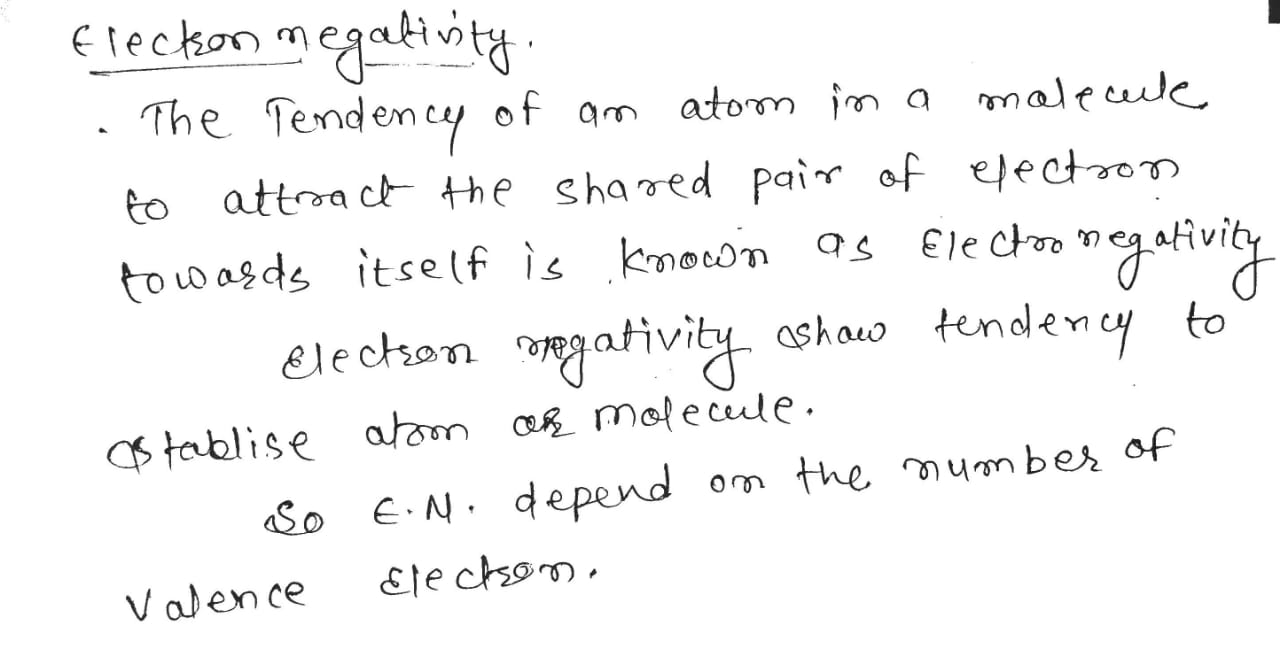 Electron negativity.
. The Tendency of an atom in a molecule
to attract the shared pair of electron
towards itself is known as Electronegativity
Electron negativity show tendency to
stablise atom or molecule.
So E.N. depend on the number of
Valence Electron.